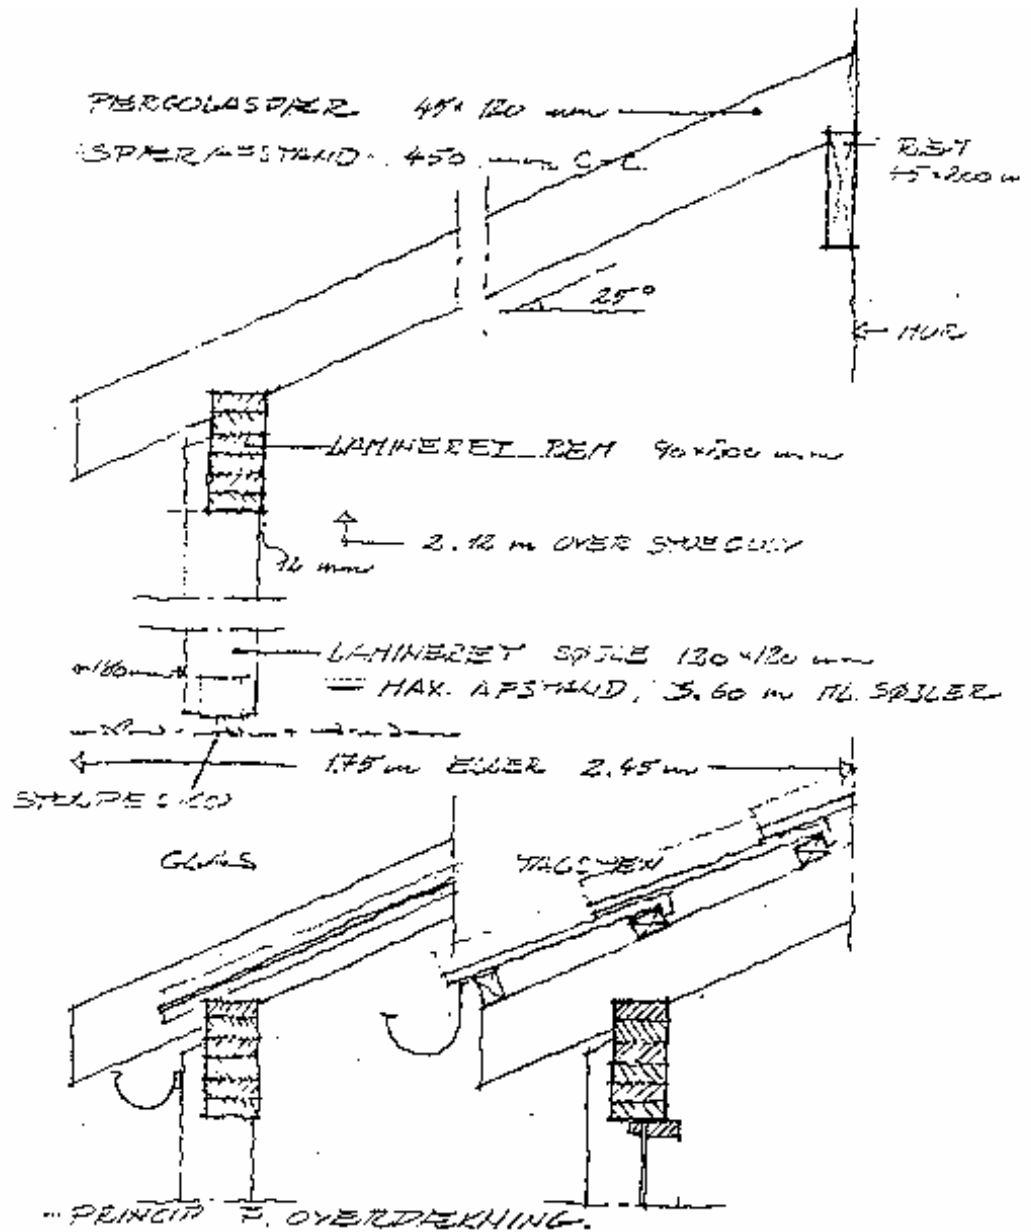 PERGOLASPÆR 45×120 mm
SPÆRAFSTAND. 450 mm C-C.
REM
45×200 m
25°
MUR
LAMINERET REM 90×200 mm
2.12 m OVER STUEGULV
12 mm
LAMINERET SØJLE 120×120 mm
MAX. AFSTAND, 3.60 m ML. SØJLER
1.75 m ELLER 2.45 m
GLAS
TAGSTEN
PRINCIP F. OVERDÆKNING.